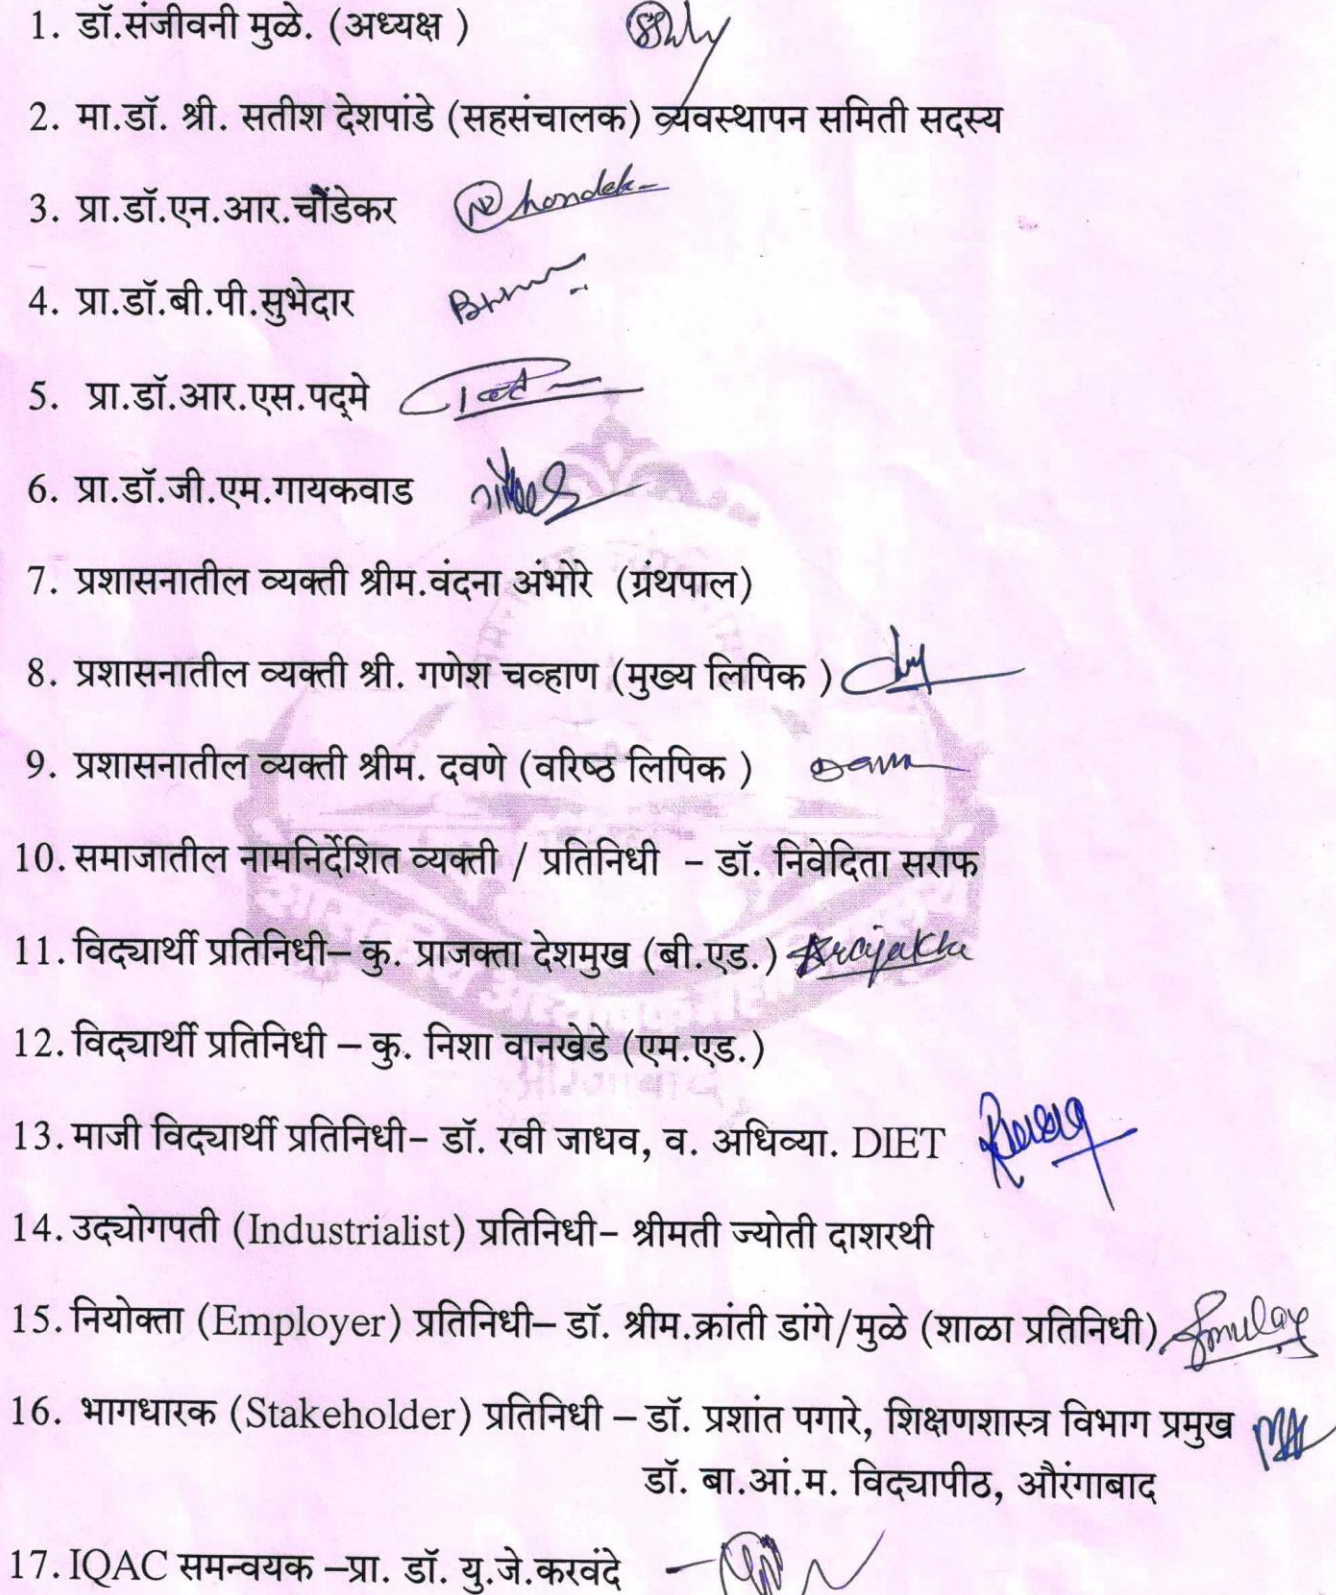 1. डॉ.संजीवनी मुळे. (अध्यक्ष )
2. मा.डॉ. श्री. सतीश देशपांडे (सहसंचालक) व्यवस्थापन समिती सदस्य
3. प्रा.डॉ.एन.आर.चौंडेकर
4. प्रा.डॉ.बी.पी.सुभेदार
5. प्रा.डॉ.आर.एस.पद्मे
6. प्रा.डॉ.जी.एम.गायकवाड
7. प्रशासनातील व्यक्ती श्रीम.वंदना अंभोरे (ग्रंथपाल)
8. प्रशासनातील व्यक्ती श्री. गणेश चव्हाण (मुख्य लिपिक )
9. प्रशासनातील व्यक्ती श्रीम. दवणे (वरिष्ठ लिपिक )
10. समाजातील नामनिर्देशित व्यक्ती / प्रतिनिधी - डॉ. निवेदिता सराफ
11. विद्यार्थी प्रतिनिधी– कु. प्राजक्ता देशमुख (बी.एड.)
12. विद्यार्थी प्रतिनिधी – कु. निशा वानखेडे (एम.एड.)
13. माजी विद्यार्थी प्रतिनिधी- डॉ. रवी जाधव, व. अधिव्या. DIET
14. उद्योगपती (Industrialist) प्रतिनिधी- श्रीमती ज्योती दाशरथी
15. नियोक्ता (Employer) प्रतिनिधी– डॉ. श्रीम.क्रांती डांगे/मुळे (शाळा प्रतिनिधी)
16. भागधारक (Stakeholder) प्रतिनिधी – डॉ. प्रशांत पगारे, शिक्षणशास्त्र विभाग प्रमुख
डॉ. बा.आं.म. विद्यापीठ, औरंगाबाद
17. IQAC समन्वयक –प्रा. डॉ. यु.जे.करवंदे